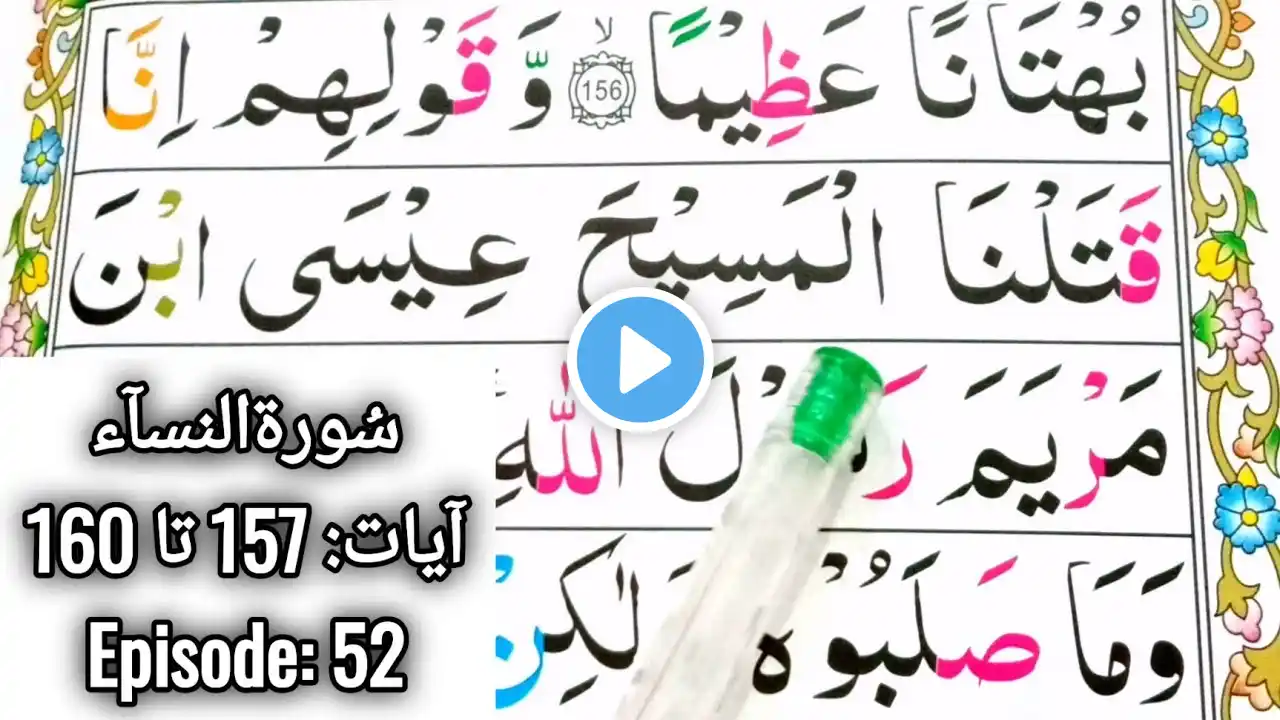 بُهْتَانًا عَظِيْمًا ۙ 156 وَّ قَوْلِهِمْ اِنَّا
قَتَلْنَا الْمَسِيْحَ عِيْسَى ابْنَ
مَرْيَمَ اللّٰهِ
وَمَا صَلَبُوْهُ لٰكِنْ
سُورةالنسآء
آیات: 157 تا 160
Episode: 52